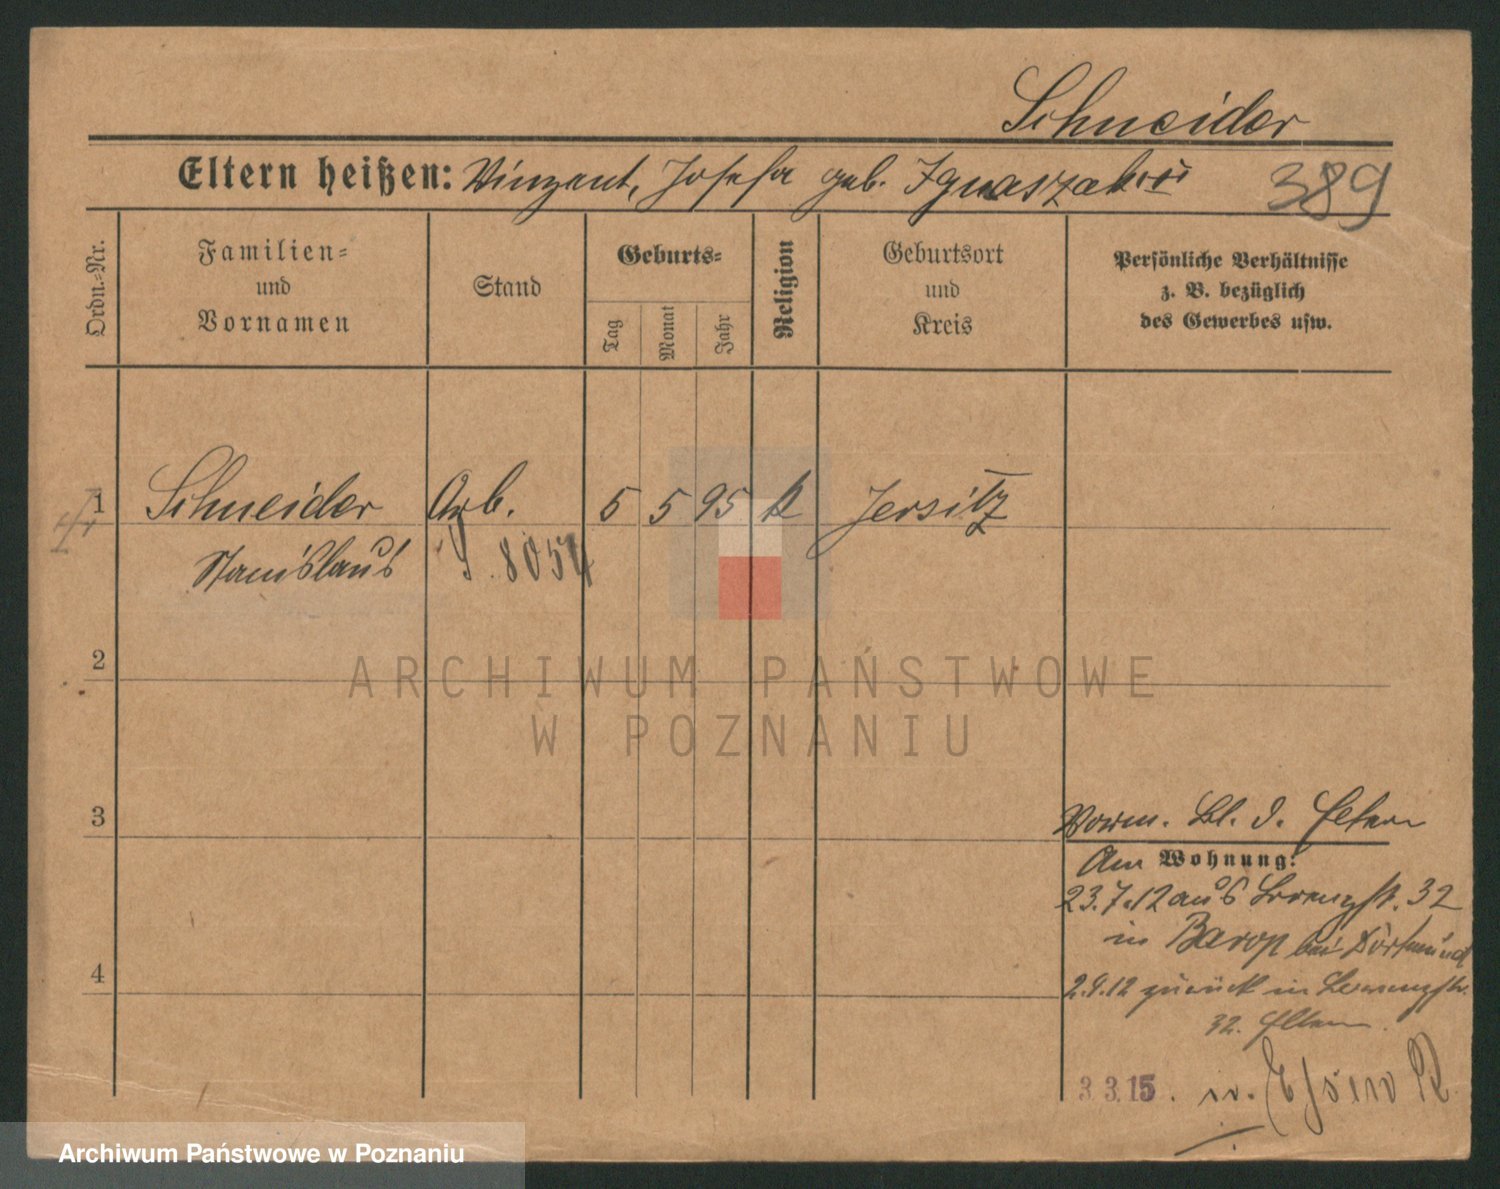 Schneider
Eltern heißen: Vinzent, Josefa geb. Ignaszak
389
Ordn.-Nr.
Familien-
und
Vornamen
Stand
Geburts-
Tag
Monat
Jahr
Religion
Geburtsort
und
Kreis
Persönliche Verhältnisse
z. B. bezüglich
des Gewerbes usw.
1 Schneider Arb. 5 5 95 k Jersitz
Stanislaus S. 8054
2
ARCHIWUM PAŃSTWOWE
W POZNANIU
3
Vorm. Bl. d. Eltern
Am Wohnung:
23.7.12 aus 32
in Barop bei Dortmund
4
2.9.12 zurück in
32. Eltern.
3.3.15. n. Essen R
Archiwum Państwowe w Poznaniu